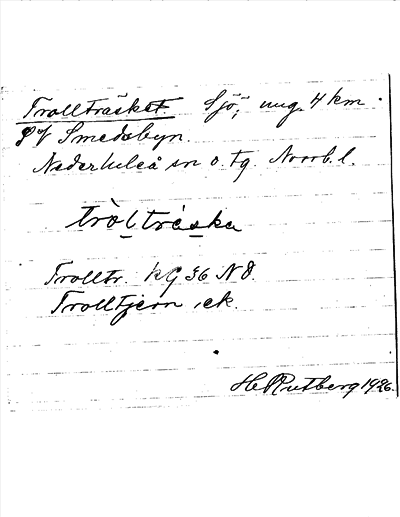 Trollträsket. Sjö; ung. 4 km.
SV Smedsbyn.
Nederluleå sn o. tg. Norrb. l.
tròlträ́ska
Trolltr. KG 36 NO.
Trolltjern ek.
H Rutberg 1926.